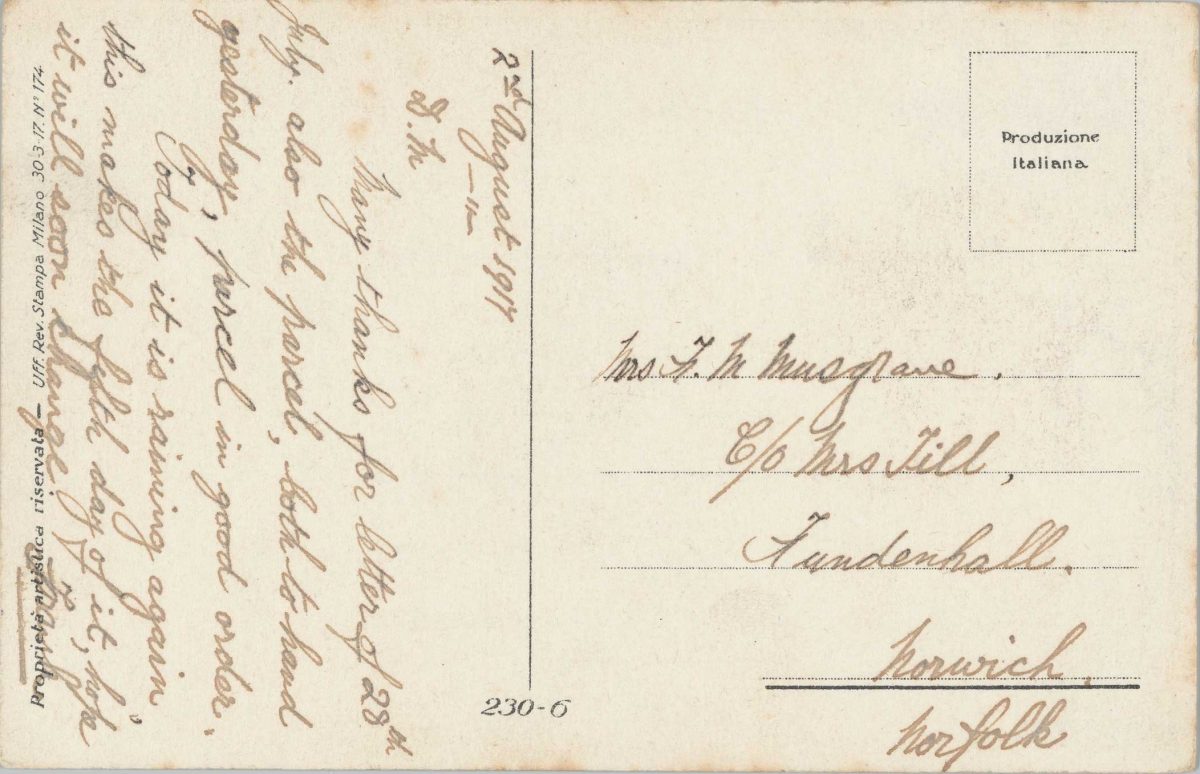 2nd August 1917
D. M
Many thanks for letter of 28th
July. also the parcel, both to hand
yesterday, parcel in good order.
Today it is raining again
this makes the fifth day of it, hope
it will soon change.
Proprietà artistica riservata — Uff. Rev. Stampa Milano 30-3-17. N° 174
230-6
Produzione
Italiana
Mrs F. M Musgrave.
C/o Mrs Till,
Fundenhall.
Norwich,
Norfolk